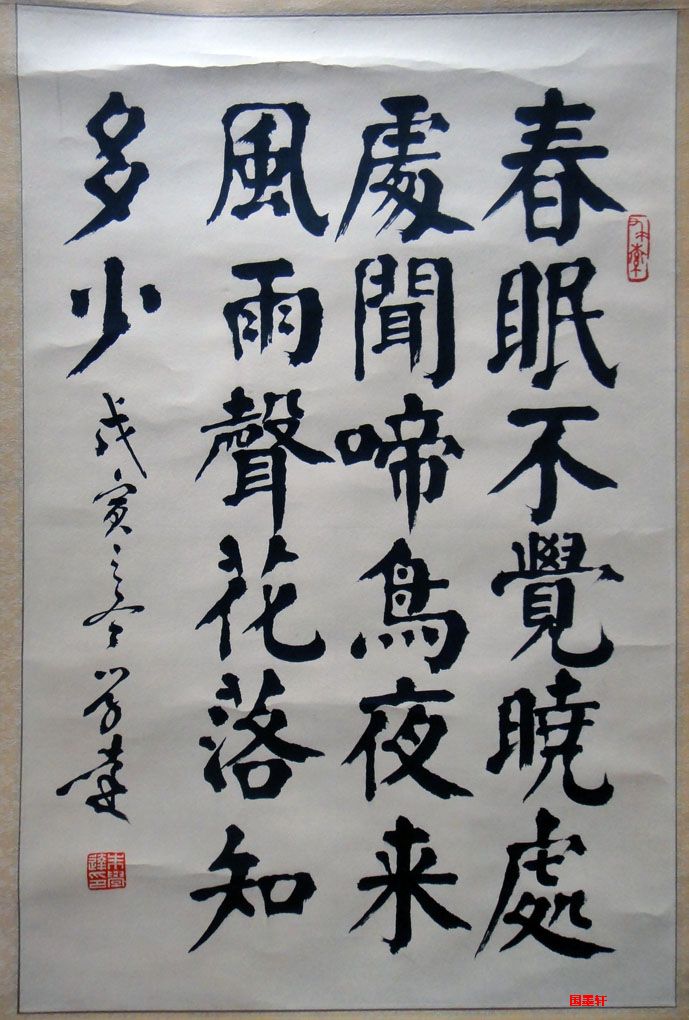 春眠不覺曉處
處聞啼鳥夜来
風雨聲花落知
多少
戊寅之冬学達
朱學達印
国墨轩